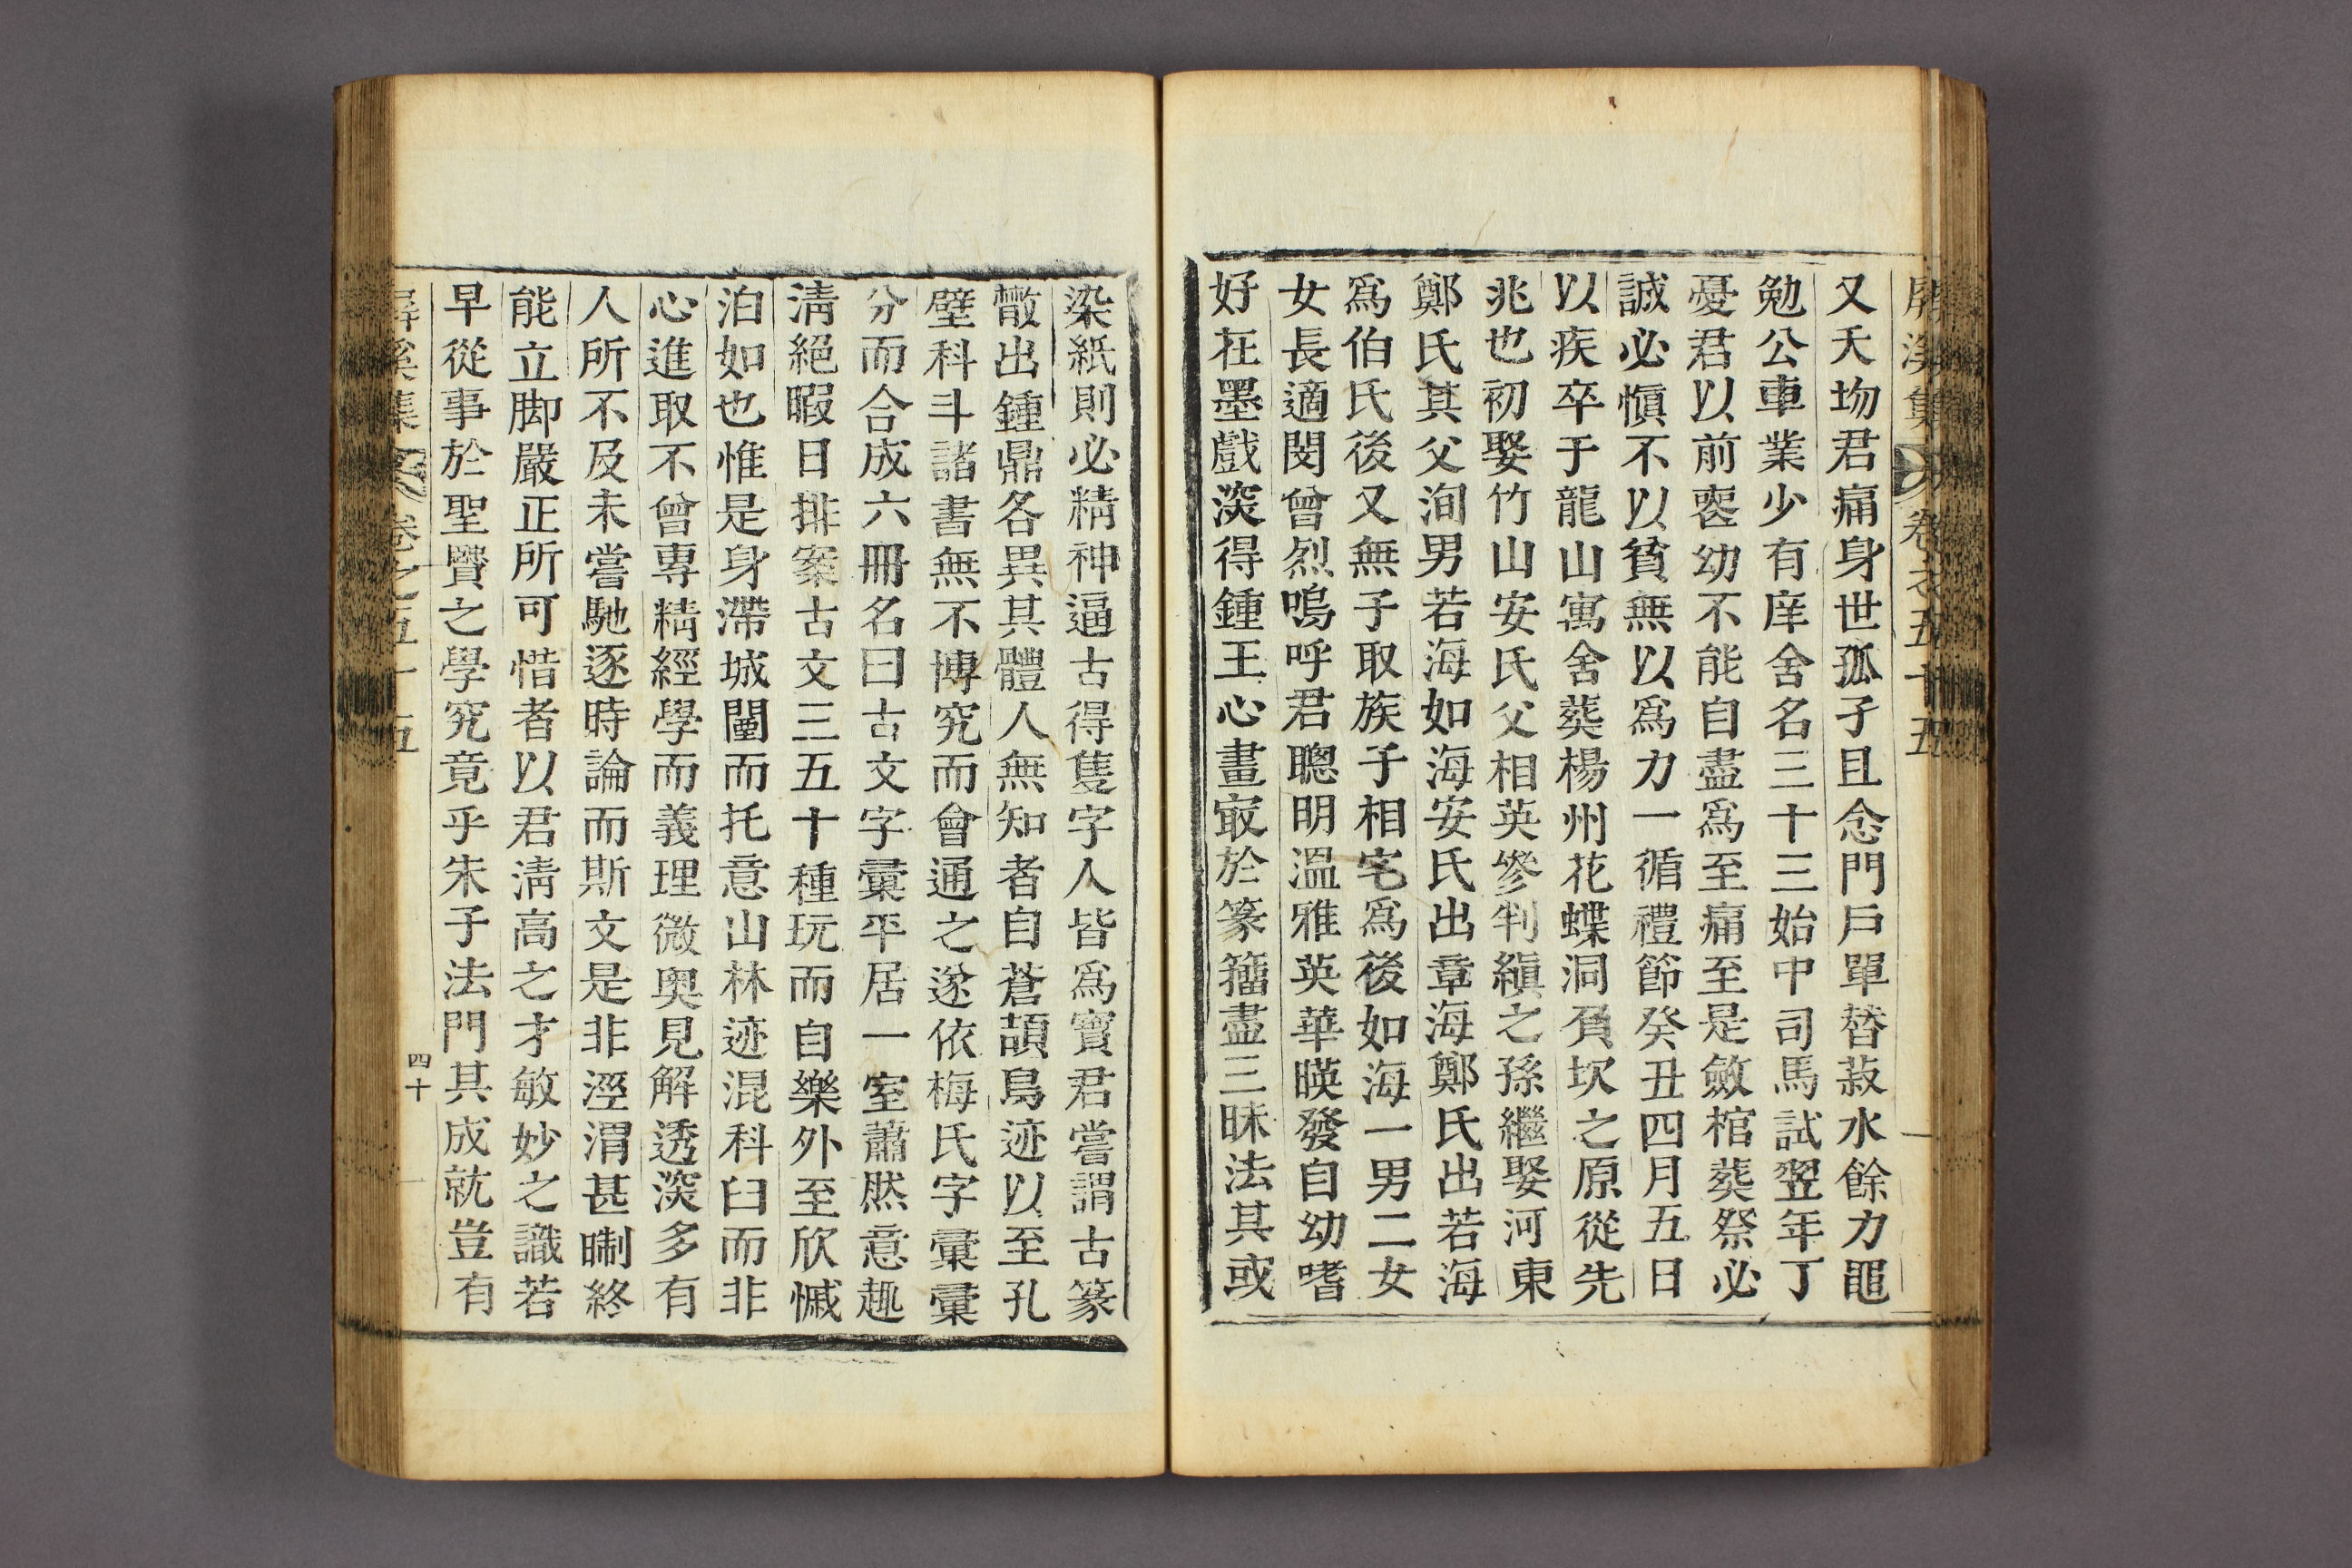 屛溪集 卷之五十五
又夭圽君痛身世孤孑且念門戶單替菽水餘力黽
勉公車業少有庠舍名三十三始中司馬試翌年丁
憂君以前喪幼不能自盡爲至痛至是斂棺葬祭必
誠必愼不以貧無以爲力一循禮節癸丑四月五日
以疾卒于龍山寓舍葬楊州花蝶洞負坎之原從先
兆也初娶竹山安氏父相英參判縝之孫繼娶河東
鄭氏其父洵男若海如海安氏出章海鄭氏出若海
爲伯氏後又無子取族子相宅爲後如海一男二女
女長適閔曾烈嗚呼君聰明溫雅英華暎發自幼嗜
好在墨戲深得鍾王心畫㝡於篆籒盡三昧法其或
染紙則必精神逼古得隻字人皆爲寶君嘗謂古篆
㪚出鍾鼎各異其體人無知者自蒼頡鳥迹以至孔
壁科斗諸書無不博究而會通之遂依梅氏字彙彙
分而合成六冊名曰古文字彙平居一室蕭然意趣
淸絕暇日排案古文三五十種玩而自樂外至欣慽
泊如也惟是身滯城闉而托意山林迹混科臼而非
心進取不曾專精經學而義理微奧見解透深多有
人所不及未嘗馳逐時論而斯文是非涇渭甚晣終
能立脚嚴正所可惜者以君淸高之才敏妙之識若
早從事於聖贒之學究竟乎朱子法門其成就豈有
屛溪集 卷之五十五 四十